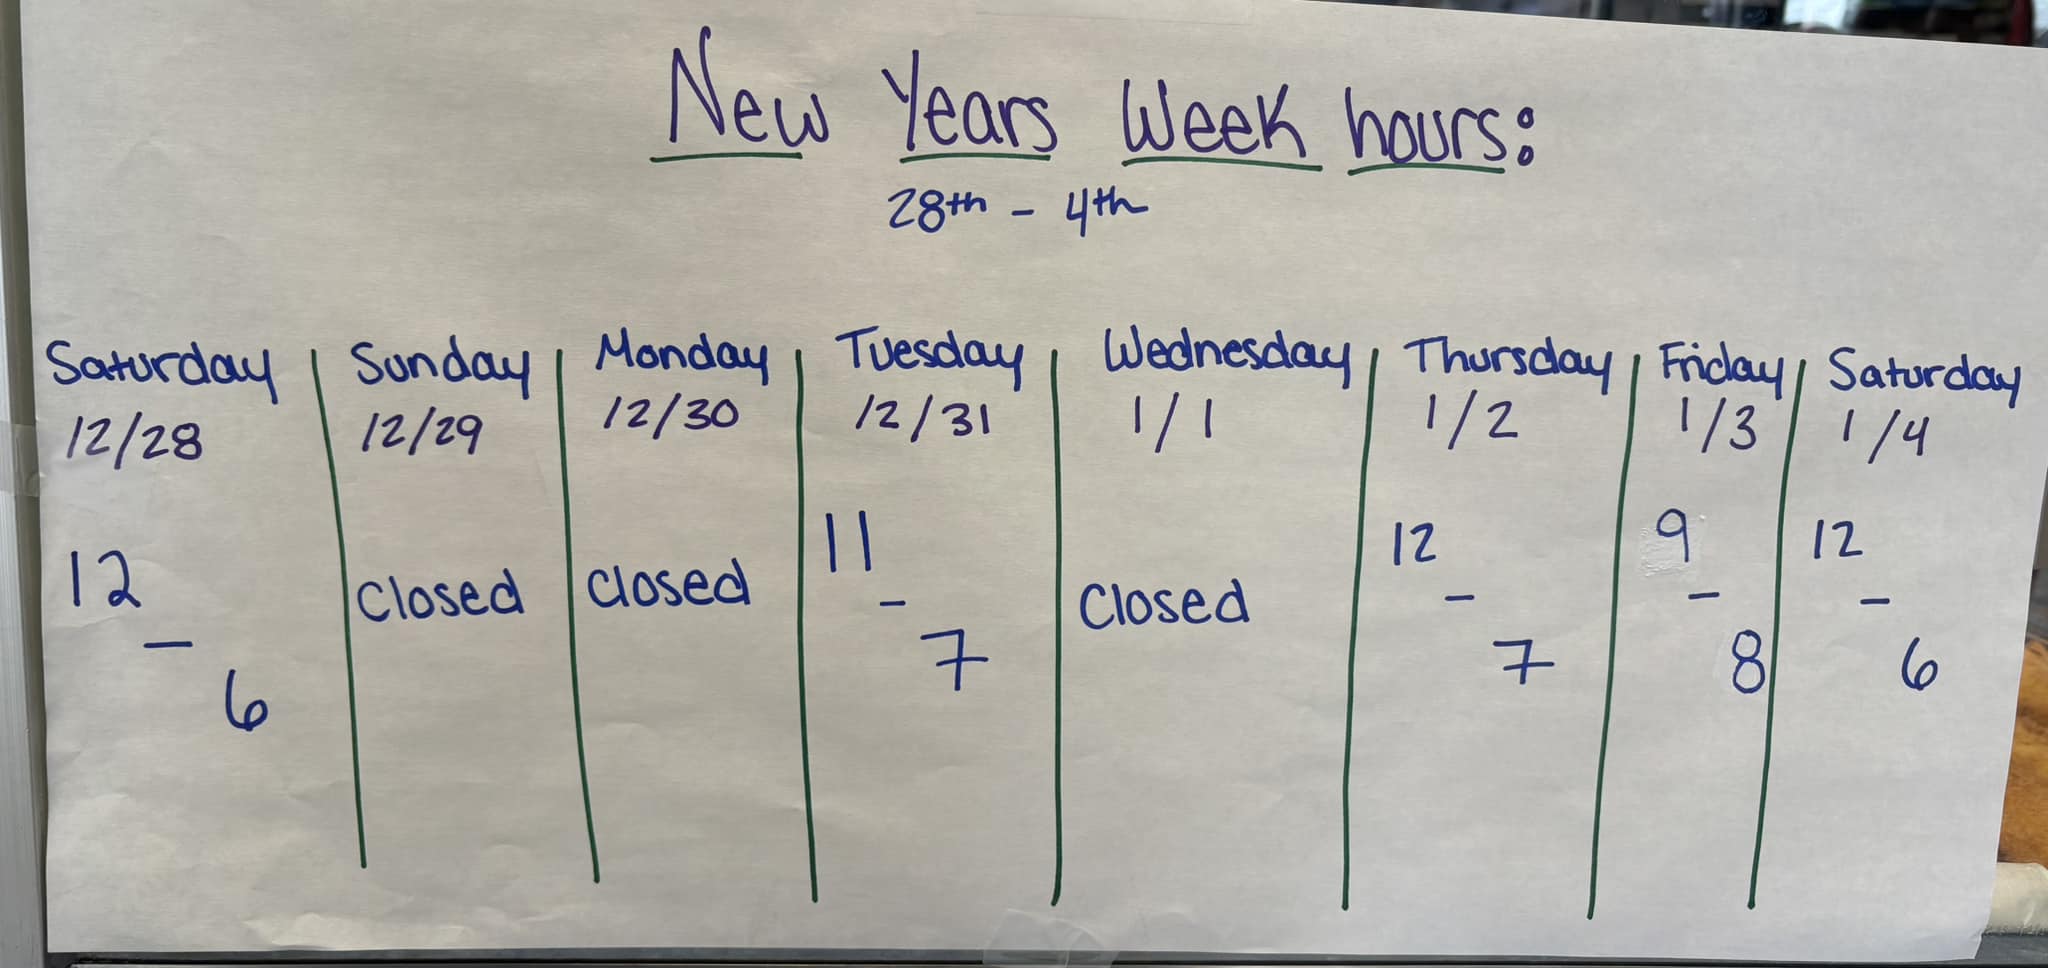 New Years Week hours:
28th - 4th
Saturday Sunday Monday Tuesday Wednesday Thursday Friday Saturday
12/28 12/29 12/30 12/31 1/1 1/2 1/3 1/4
12 - 6 Closed Closed 11 - 7 Closed 12 - 7 9 - 8 12 - 6